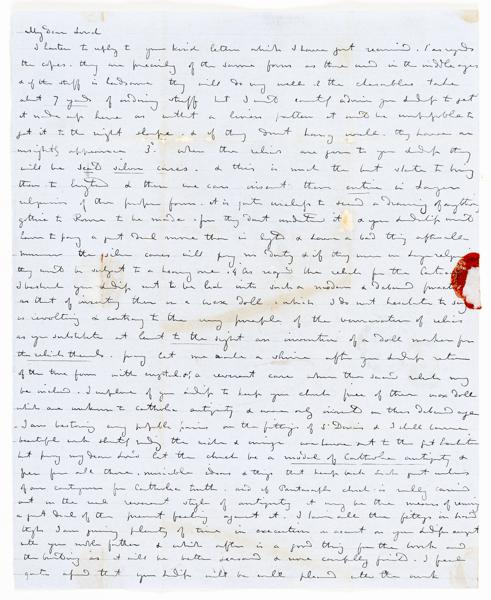 My dear Lord
I hasten to reply to your kind letter which I have just received. 1 as regards
the copes. they are precisely of the same form as those used in the middle ages
& if the stuff is handsome they will do very well & the chasubles take
about 7 yards of ordinary stuff but I would advise your Lordship to get
it made up here as without a linen pattern it would be impossible to
get it to the right shape. & if they dont hang well. they have an
unsightly appearance 3º when the relics are given to your Lordship they
will be in silver cases. & this is much the best state to bring
them to England & then we can insert them entire in larger
reliquaries of the proper form. it is quite useless to send a drawing of anything
gothic to Rome to be made. for they dont understand it & your Lordship would
have to pay a great deal more than in England & have a bad thing after all
moreover the silver cases will pay no duty & if they were in large
they would be subject to a heavy one. 4 as regards the relick for the
I beseech your Lordship not to be led into such a modern & debased practice
as that of inserting them in a wax doll. which I do not hesitate to say
is revolting & contrary to the very principle of the veneration of relics
as you substitute at least to the sight an invention of a doll maker for
the relick itself. pray let me make a shrine after your Lordships return
of the true form with crystals, a reverent case where the sacred relicks may
be inclosed. I implore of your Lordship to keep your church free of these wax dolls
which are unknown to Catholic antiquity & were only invented in these debased ages
I am bestowing every possible pains on the fittings of &
beautiful work
but pray my dear Lord let the church be a model of Catholic antiquity &
free from all these miserable ideas & things that keep back such great numbers
of our countrymen from Catholic truth. and if church is really carried
out in the real reverent style of antiquity it may be the means of removing
a great deal of the present feeling against it. I have all the fittings in hand
though I am giving plenty of time in execution on account on your Lordships
with your noble father & which after is a good thing for the work and
the building as it will be better seasoned & more carefully finished. I feel
quite assured that your Lordship will be well pleased with the work